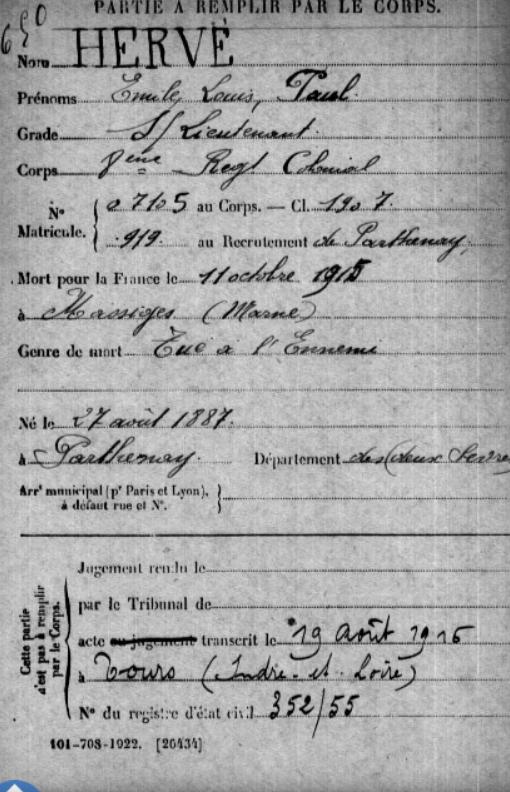 PARTIE À REMPLIR PAR LE CORPS.
650
Nom HERVÉ
Prénoms Emile, Louis, Paul.
Grade S/ Lieutenant.
Corps 8ème Regt Colonial
N° Matricule. { 7105 au Corps. — Cl. 1907.
919 au Recrutement de Parthenay.
Mort pour la France le 11 octobre 1915
à Massiges (Marne)
Genre de mort Tué à l'Ennemi
Né le 27 août 1887.
à Parthenay. Département des (deux Sèvres
Arrt municipal (pr Paris et Lyon), }
à défaut rue et N°.
Cette partie n'est pas à remplir par le Corps. {
Jugement rendu le
par le Tribunal de
acte ou jugement transcrit le 19 Août 1916
à Tours (Indre-et-Loire)
N° du registre d'état civil 352/55
101-708-1922. [26434]